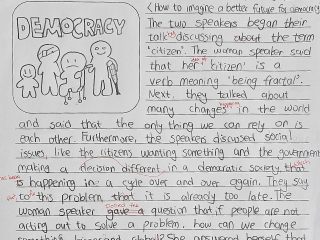 DEMOCRACY
< How to imagine a better future for democracy
The two speakers began their
talk discussing about the term
'citizen'. The woman speaker said
that her 'citizen' is a
verb meaning 'being fractal'.
Next, they talked about
many changes in the world
and said that the only thing we can rely on is
each other. Furthermore, the speakers discussed social
issues, like the citizens wanting something and the government
making a decision different in a democratic society that
is happening in a cycle over and over again. They say
to this problem, that it is already too late. The
woman speaker gave a question that, if people are not
acting out to solve a problem, how can we change
something bigger and global? She answered herself that